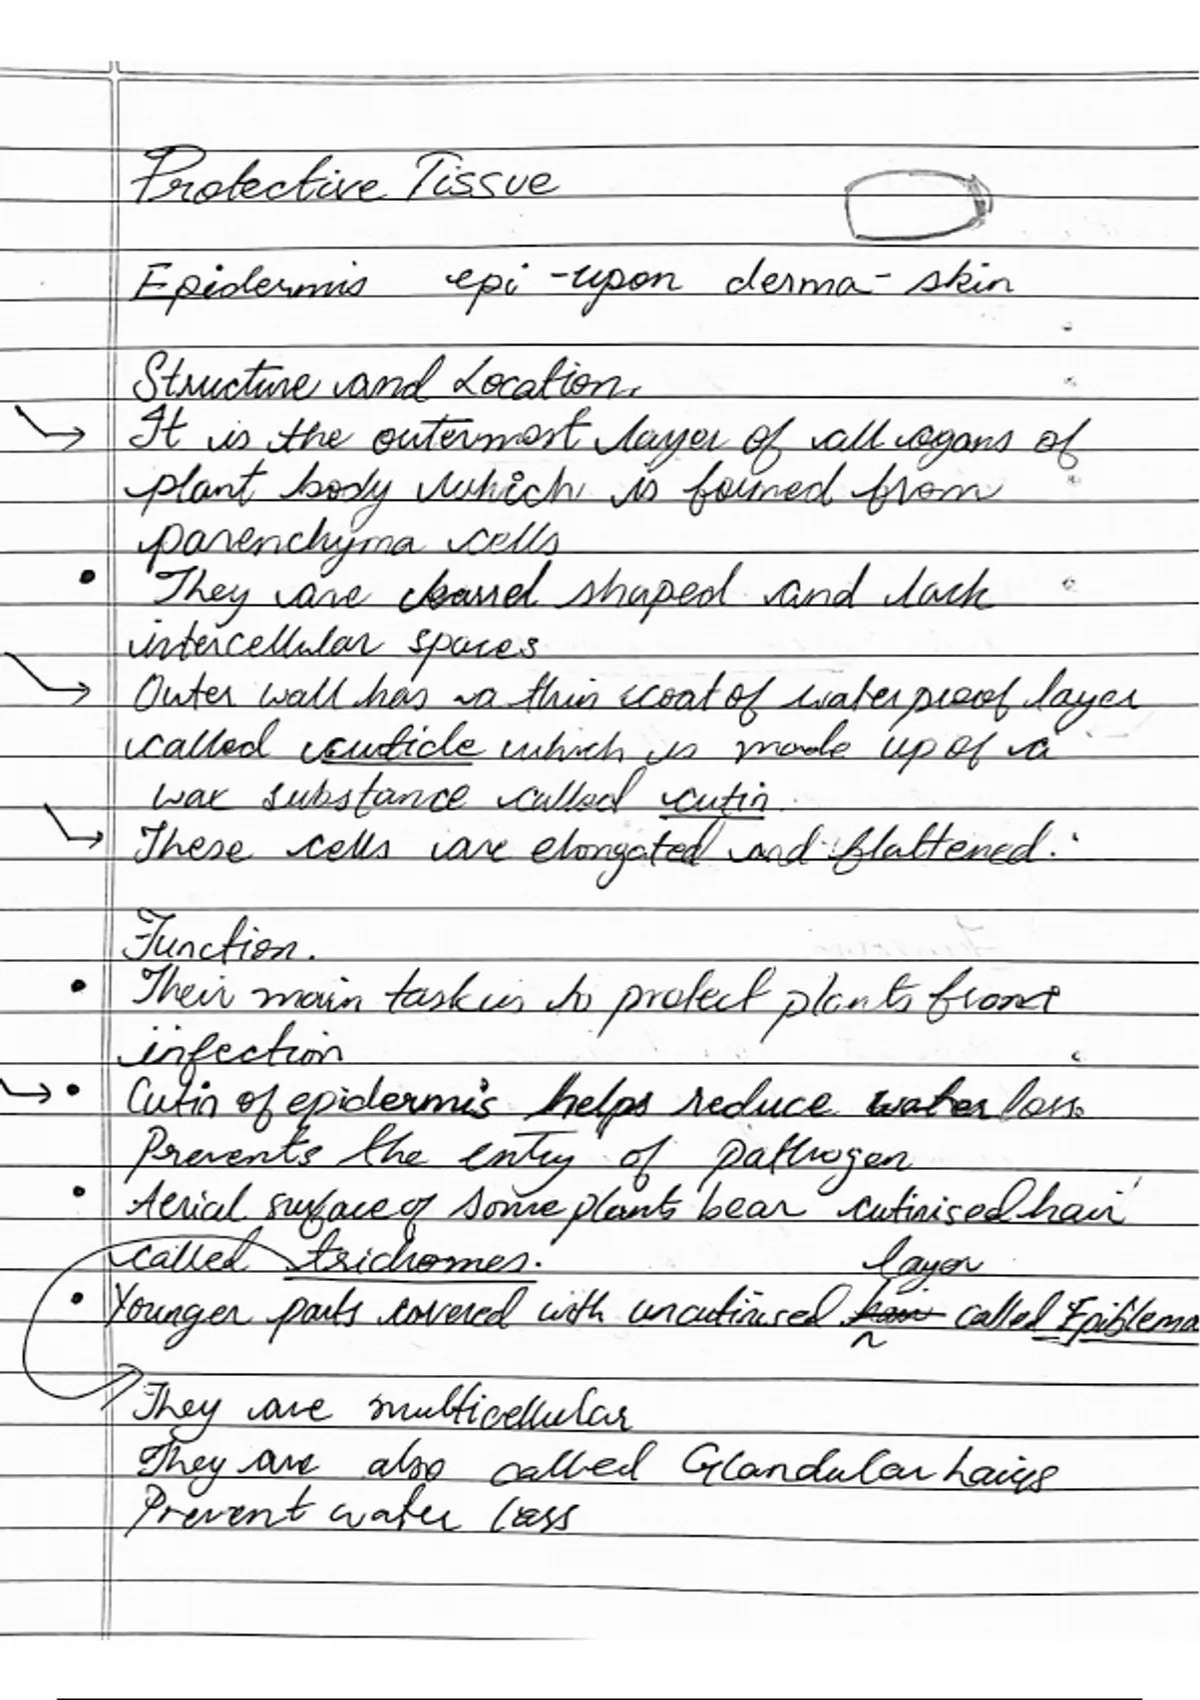 Protective Tissue
Epidermis epi - upon derma - skin
Structure and Location.
It is the outermost layer of all ogans of
plant body which is formed from
parenchyma cells
They are barrel shaped and lack
intercellular spaces
Outer wall has a thin coat of water proof layer
called cuticle which is made up of a
wax substance called cutin.
These cells are elongated and flattened.
Function.
Their main task is to protect plants from
infection
Cutin of epidermis helps reduce water loss.
Prevents the entry of pathogen
Aerial surface of some plants bear cutinised hair
called trichomes.
layer
Younger parts covered with uncutinised hair called Epiblema
They are multicellular
They are also called Glandular hairs
Prevent water loss